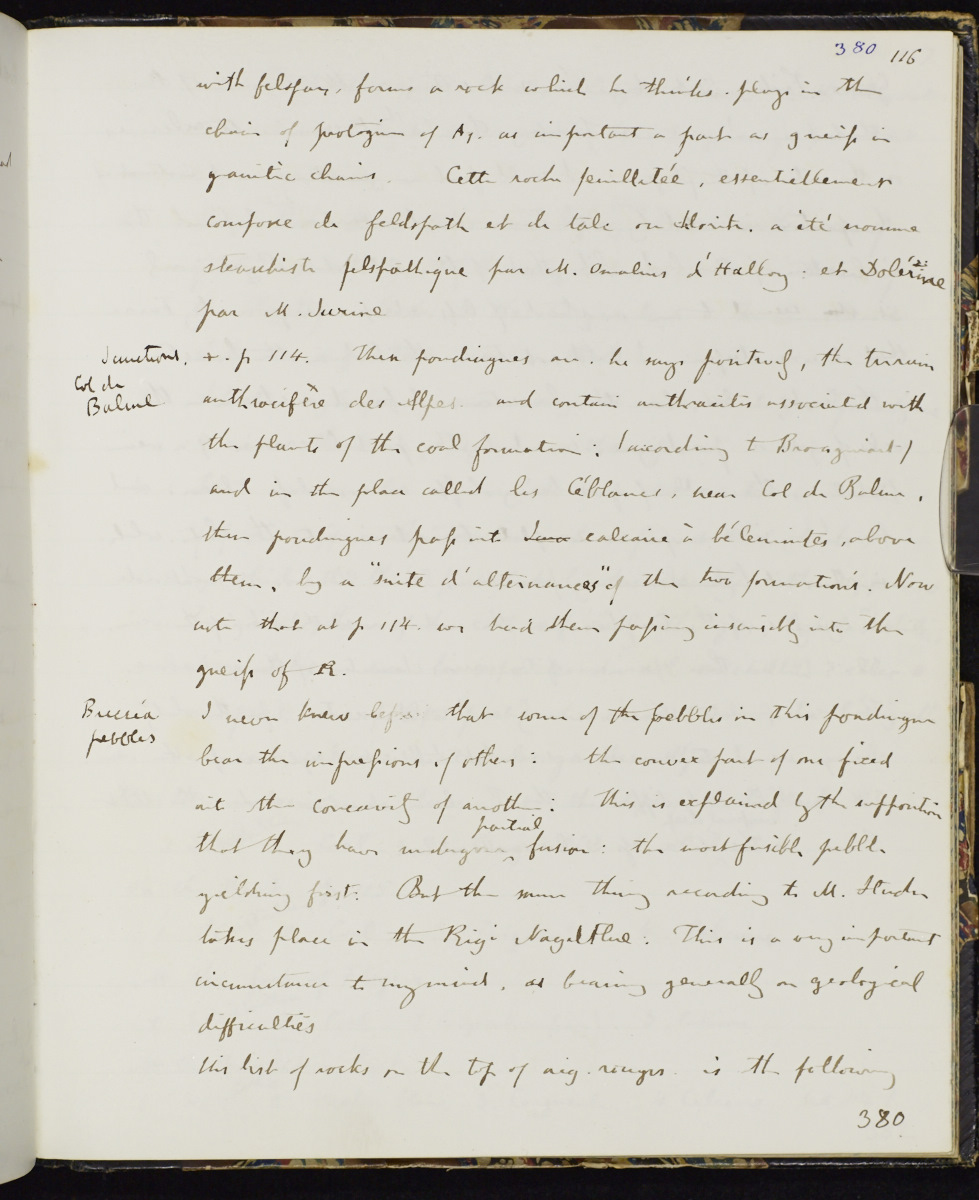 380 116
with felspar, forms a rock which he thinks. plays in the
chain of protogine of as important a part as gneiss in
granitic chains. Cette roche feuilletée, essentiellement
composée de feldspath et de talc ou chlorite. a été nommé
steaschiste felspathique par M. Omalius d'Halloy. et Dolérine
par M. Jurine
Junctions. +. p 114. These poudingues are. he says positively, the terrain
Col de
Balme
anthracifère des Alpes. and contain anthracites associated with
the plants of the coal formation; (according to Brongniart)
and in the place called les Céblancs, near Col de Balme,
these poudingues pass into calcaire à bélemnites, above
them, by a "suite d'alternances" of the two formations. Now
note that at p 114. we had them passing insensibly into the
gneiss of
Breccia
pebbles
I never knew before that some of the pebbles in this poudingue
bear the impressions of others: the convex part of one fixed
into the concavity of another: this is explained by the supposition
that they have undergone partial fusion: the most fusible pebble
yielding first. But the same thing according to M. Studer
takes place in the Rigi Nagelflue. This is a very important
circumstance to my mind, as bearing generally on geological
difficulties
His list of rocks on the top of aig. rouges. is the following
380